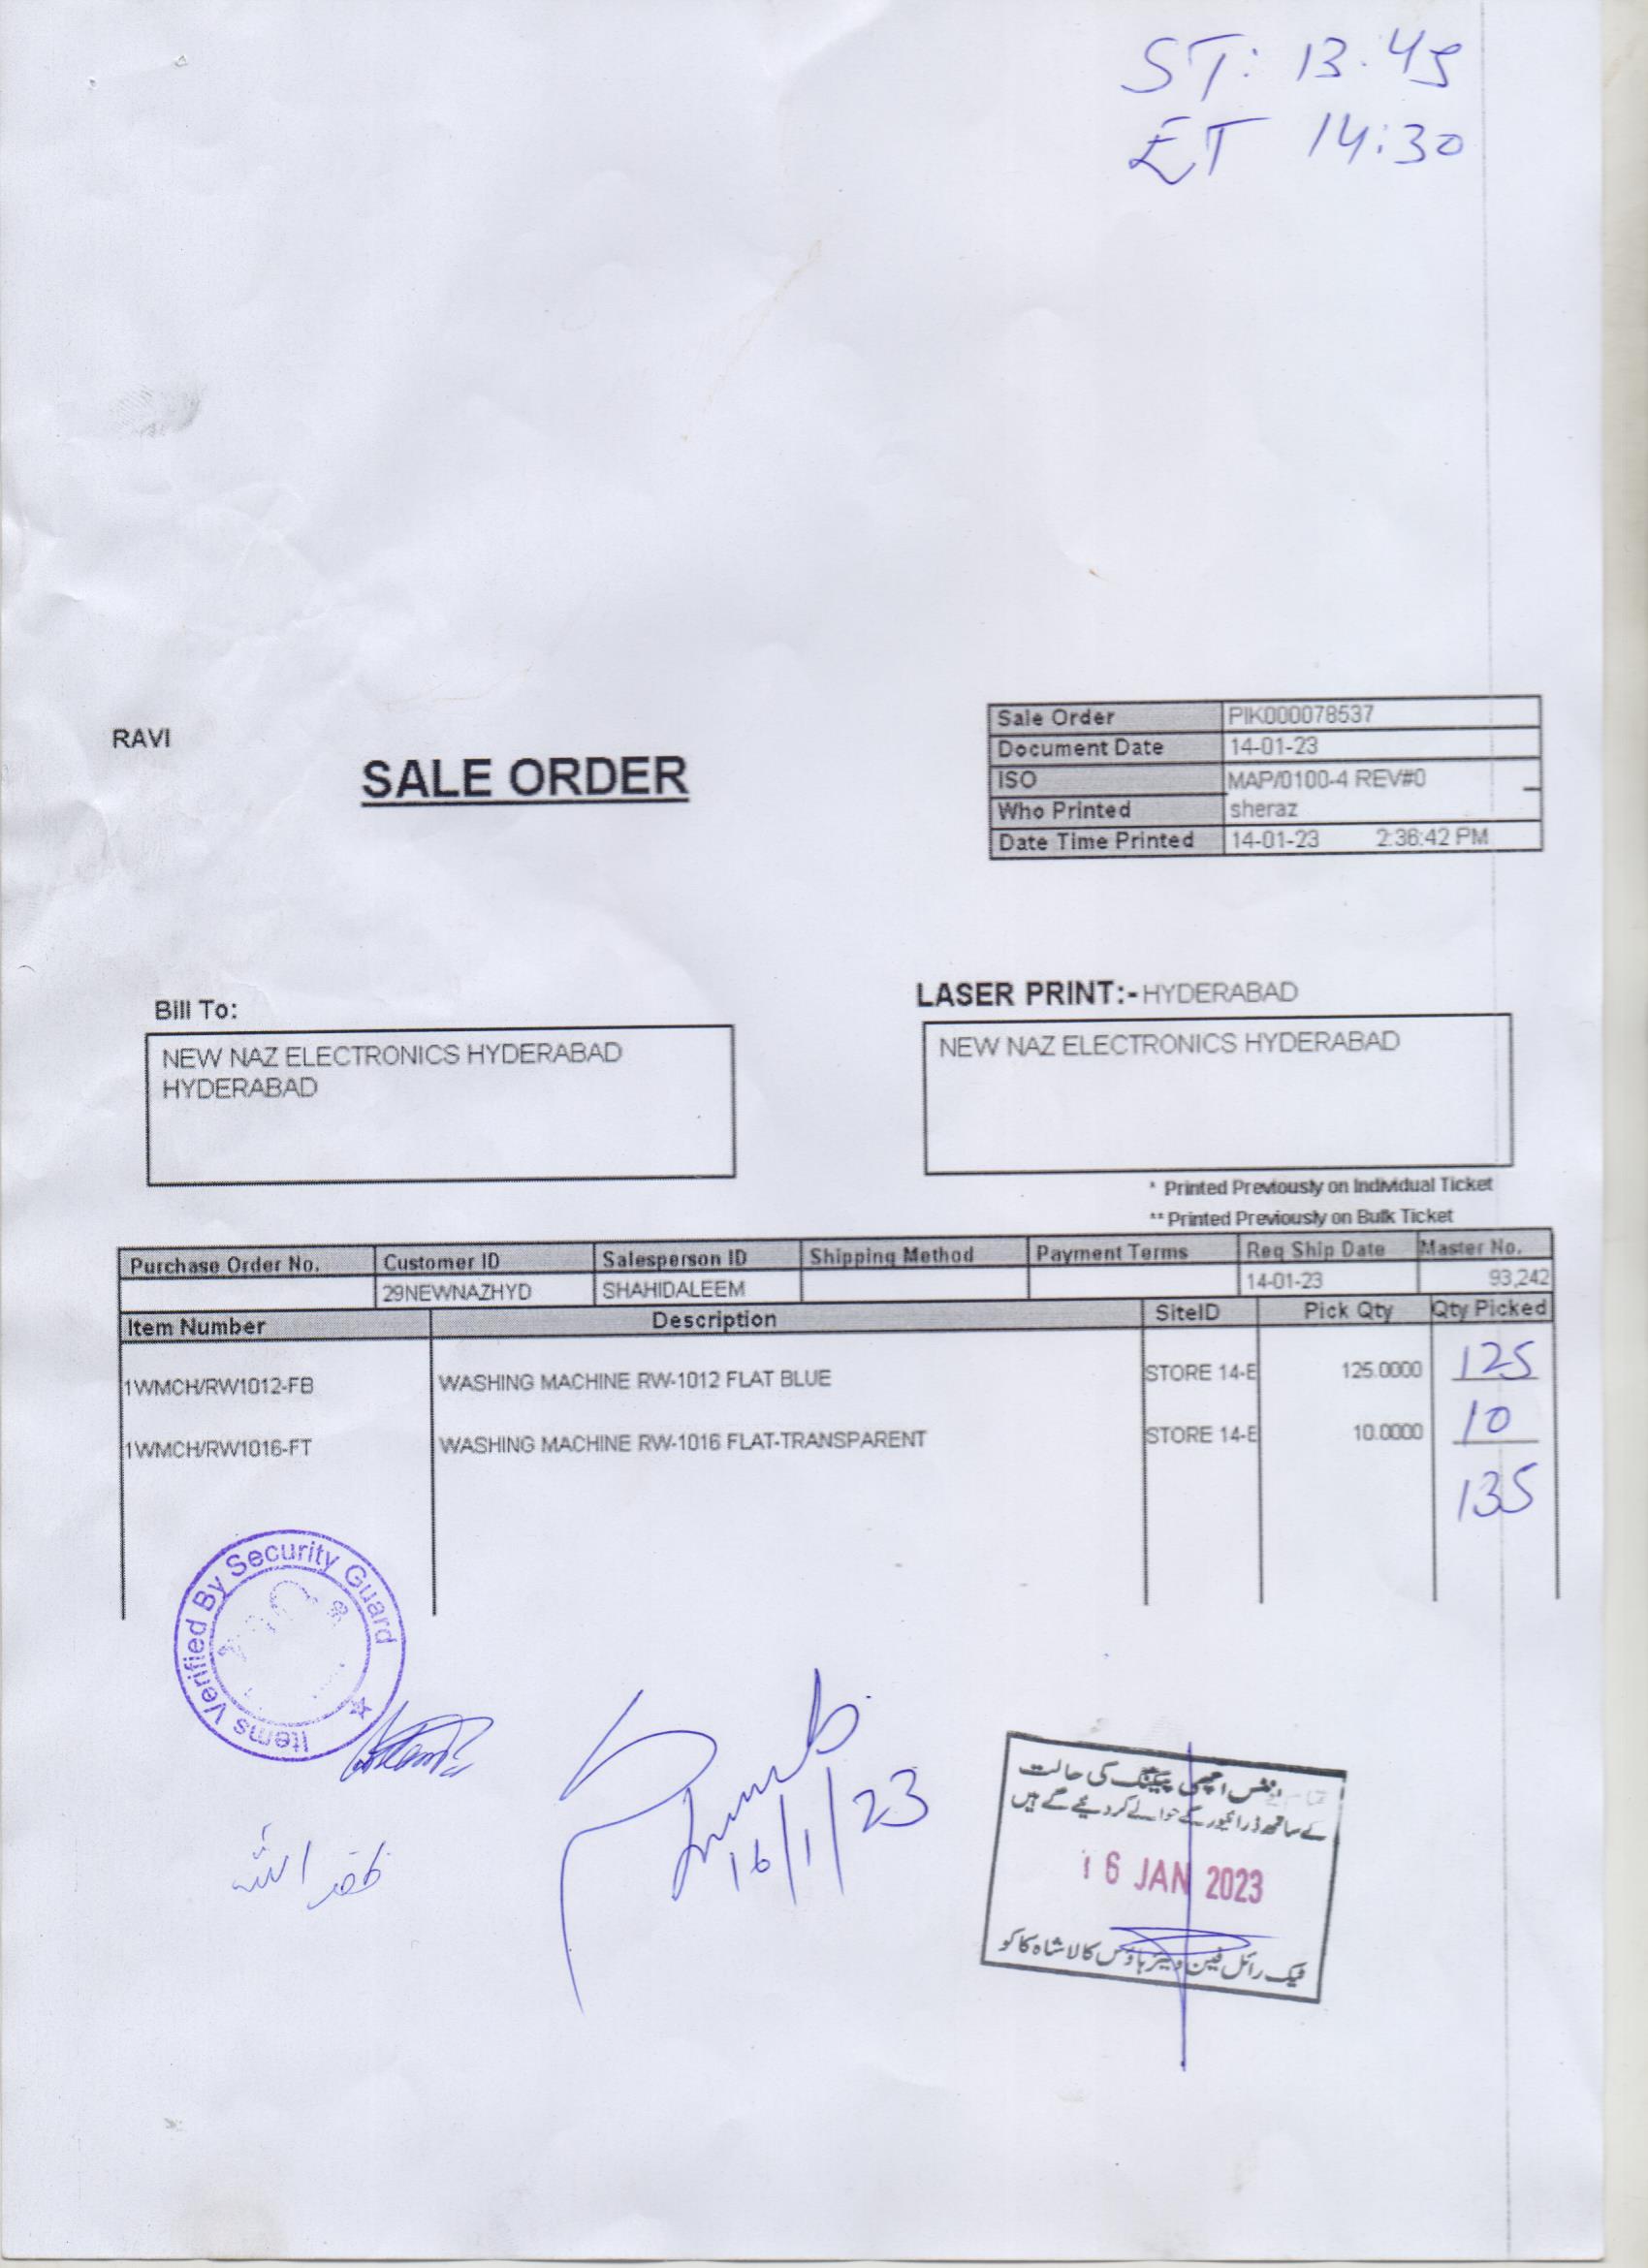 ST: 13.45
ET 14:30
RAVI
SALE ORDER
Sale Order PIK000078537
Document Date 14-01-23
ISO MAP/0100-4 REV#0
Who Printed sheraz
Date Time Printed 14-01-23 2:36:42 PM
Bill To:
NEW NAZ ELECTRONICS HYDERABAD
HYDERABAD
LASER PRINT:- HYDERABAD
NEW NAZ ELECTRONICS HYDERABAD
* Printed Previously on Individual Ticket
** Printed Previously on Bulk Ticket
Purchase Order No. Customer ID Salesperson ID Shipping Method Payment Terms Req Ship Date Master No.
29NEWNAZHYD SHAHIDALEEM 14-01-23 93,242
Item Number Description SiteID Pick Qty Qty Picked
1WMCH/RW1012-FB WASHING MACHINE RW-1012 FLAT BLUE STORE 14-E 125.0000 125
1WMCH/RW1016-FT WASHING MACHINE RW-1016 FLAT-TRANSPARENT STORE 14-E 10.0000 10
135
Items Verified By Security Guard
16/1/23
ظفر اللہ
اچھی پیکنگ کی حالت
کے ساتھ ڈرائیور کے حوالے کر دیئے گے ہیں
16 JAN 2023
ٹیک رائل فین ویئر ہاؤس کالا شاہ کاکو